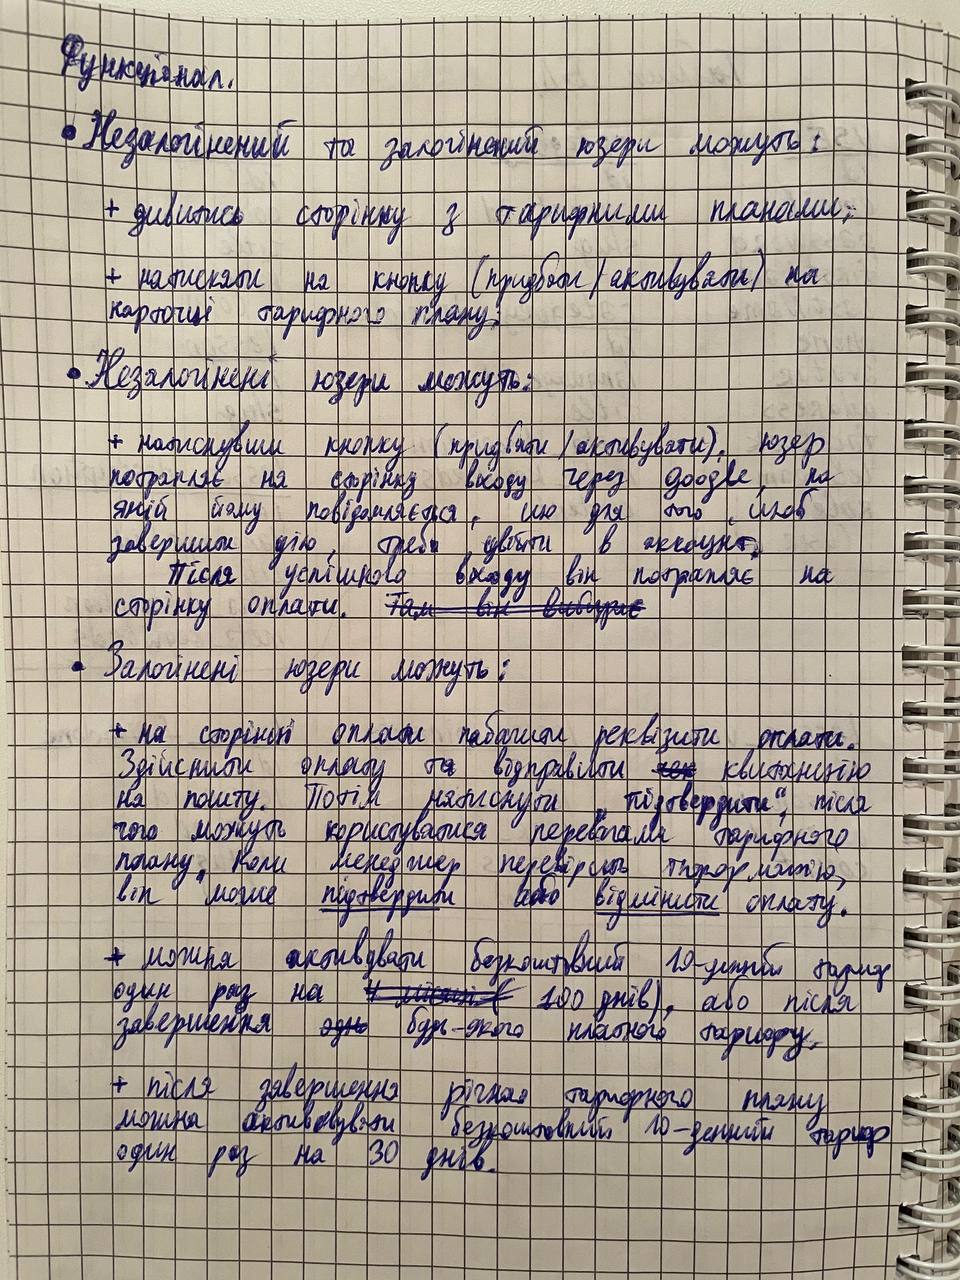 Функціонал.
• Незалогінений та залогінений юзери можуть:
+ дивитись сторінку з тарифними планами;
+ натискати на кнопку (придбати / активувати) на
карточці тарифного плану;
• Незалогінені юзери можуть:
+ натиснувши кнопку (придбати / активувати), юзер
потрапляє на сторінку входу через google, на
якій йому повідомляється, що для того, щоб
завершити дію, треба увійти в аккоунт.
Після успішного входу він потрапляє на
сторінку оплати. Там він вибирає
• Залогінені юзери можуть:
+ на сторінці оплати побачити реквізити оплати.
Здійснити оплату та відправити чек квитанцію
на пошту. Потім натиснути „підтвердити", після
чого можуть користуватися перевагами тарифного
плану. Коли менеджер перевірить інформацію,
він може підтвердити або відмінити оплату.
+ можна активувати безкоштовний 10-денний тариф
один раз на 4 місяці ( 100 днів), або після
завершення одно будь-якого платного тарифу.
+ після завершення річного тарифного плану
можна активовувати безкоштовний 10-денний тариф
один раз на 30 днів.